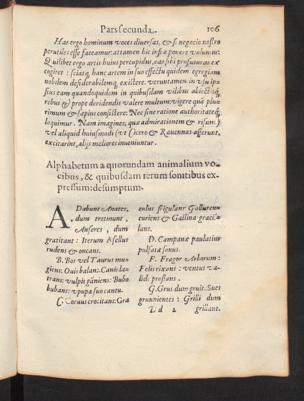 Pars secunda. 106
Has ergo hominum voces diversas, & si negocio nostro
perutiles esse fateamur: attamen hic
Quilibet ergo artis huius percupidus, eas sibi
: sciatq; hanc artem in suo effectu quidem egregiam
nobilem desiderabilemq; existere. veruntamen in
suis tam quandoquidem in quibusdam vilibus
rebus & prope deridendis valere multum
rimum & sæpius consistere. Nec sine ratione
loquimur. Nam imagines, quæ admirationem & risum,
vel aliquid huiusmodi (ut Cicero & Rauennas asserunt,
excitarint, alijs meliores inueniuntur.
Alphabetum a quorundam animalium vo-
cibus, & quibusdam rerum sonitibus ex-
pressum: desumptum.
A Dabunt Anates,
dum
Anseres, dum
gratitant: Iterum Asellus
rudens & oncans.
B. Bos vel Taurus mu-
giens. Ouis balans. Canis lau
trans: vulpis gãniens: Bubo
bubans: vpupa suo cantu.
C. Coruus crocitans: Gra
culus frigulans: Gallus cu
curiens & Gallina
lans.
D. Campanæ paulatim
pulsatæ sonus.
F. Fragor Arborum:
Felis rixans: ventus va-
lid. proflans.
G. Grus dum gruit. Sues
grunnientes: Grilli dum
Dd 2 grillant.